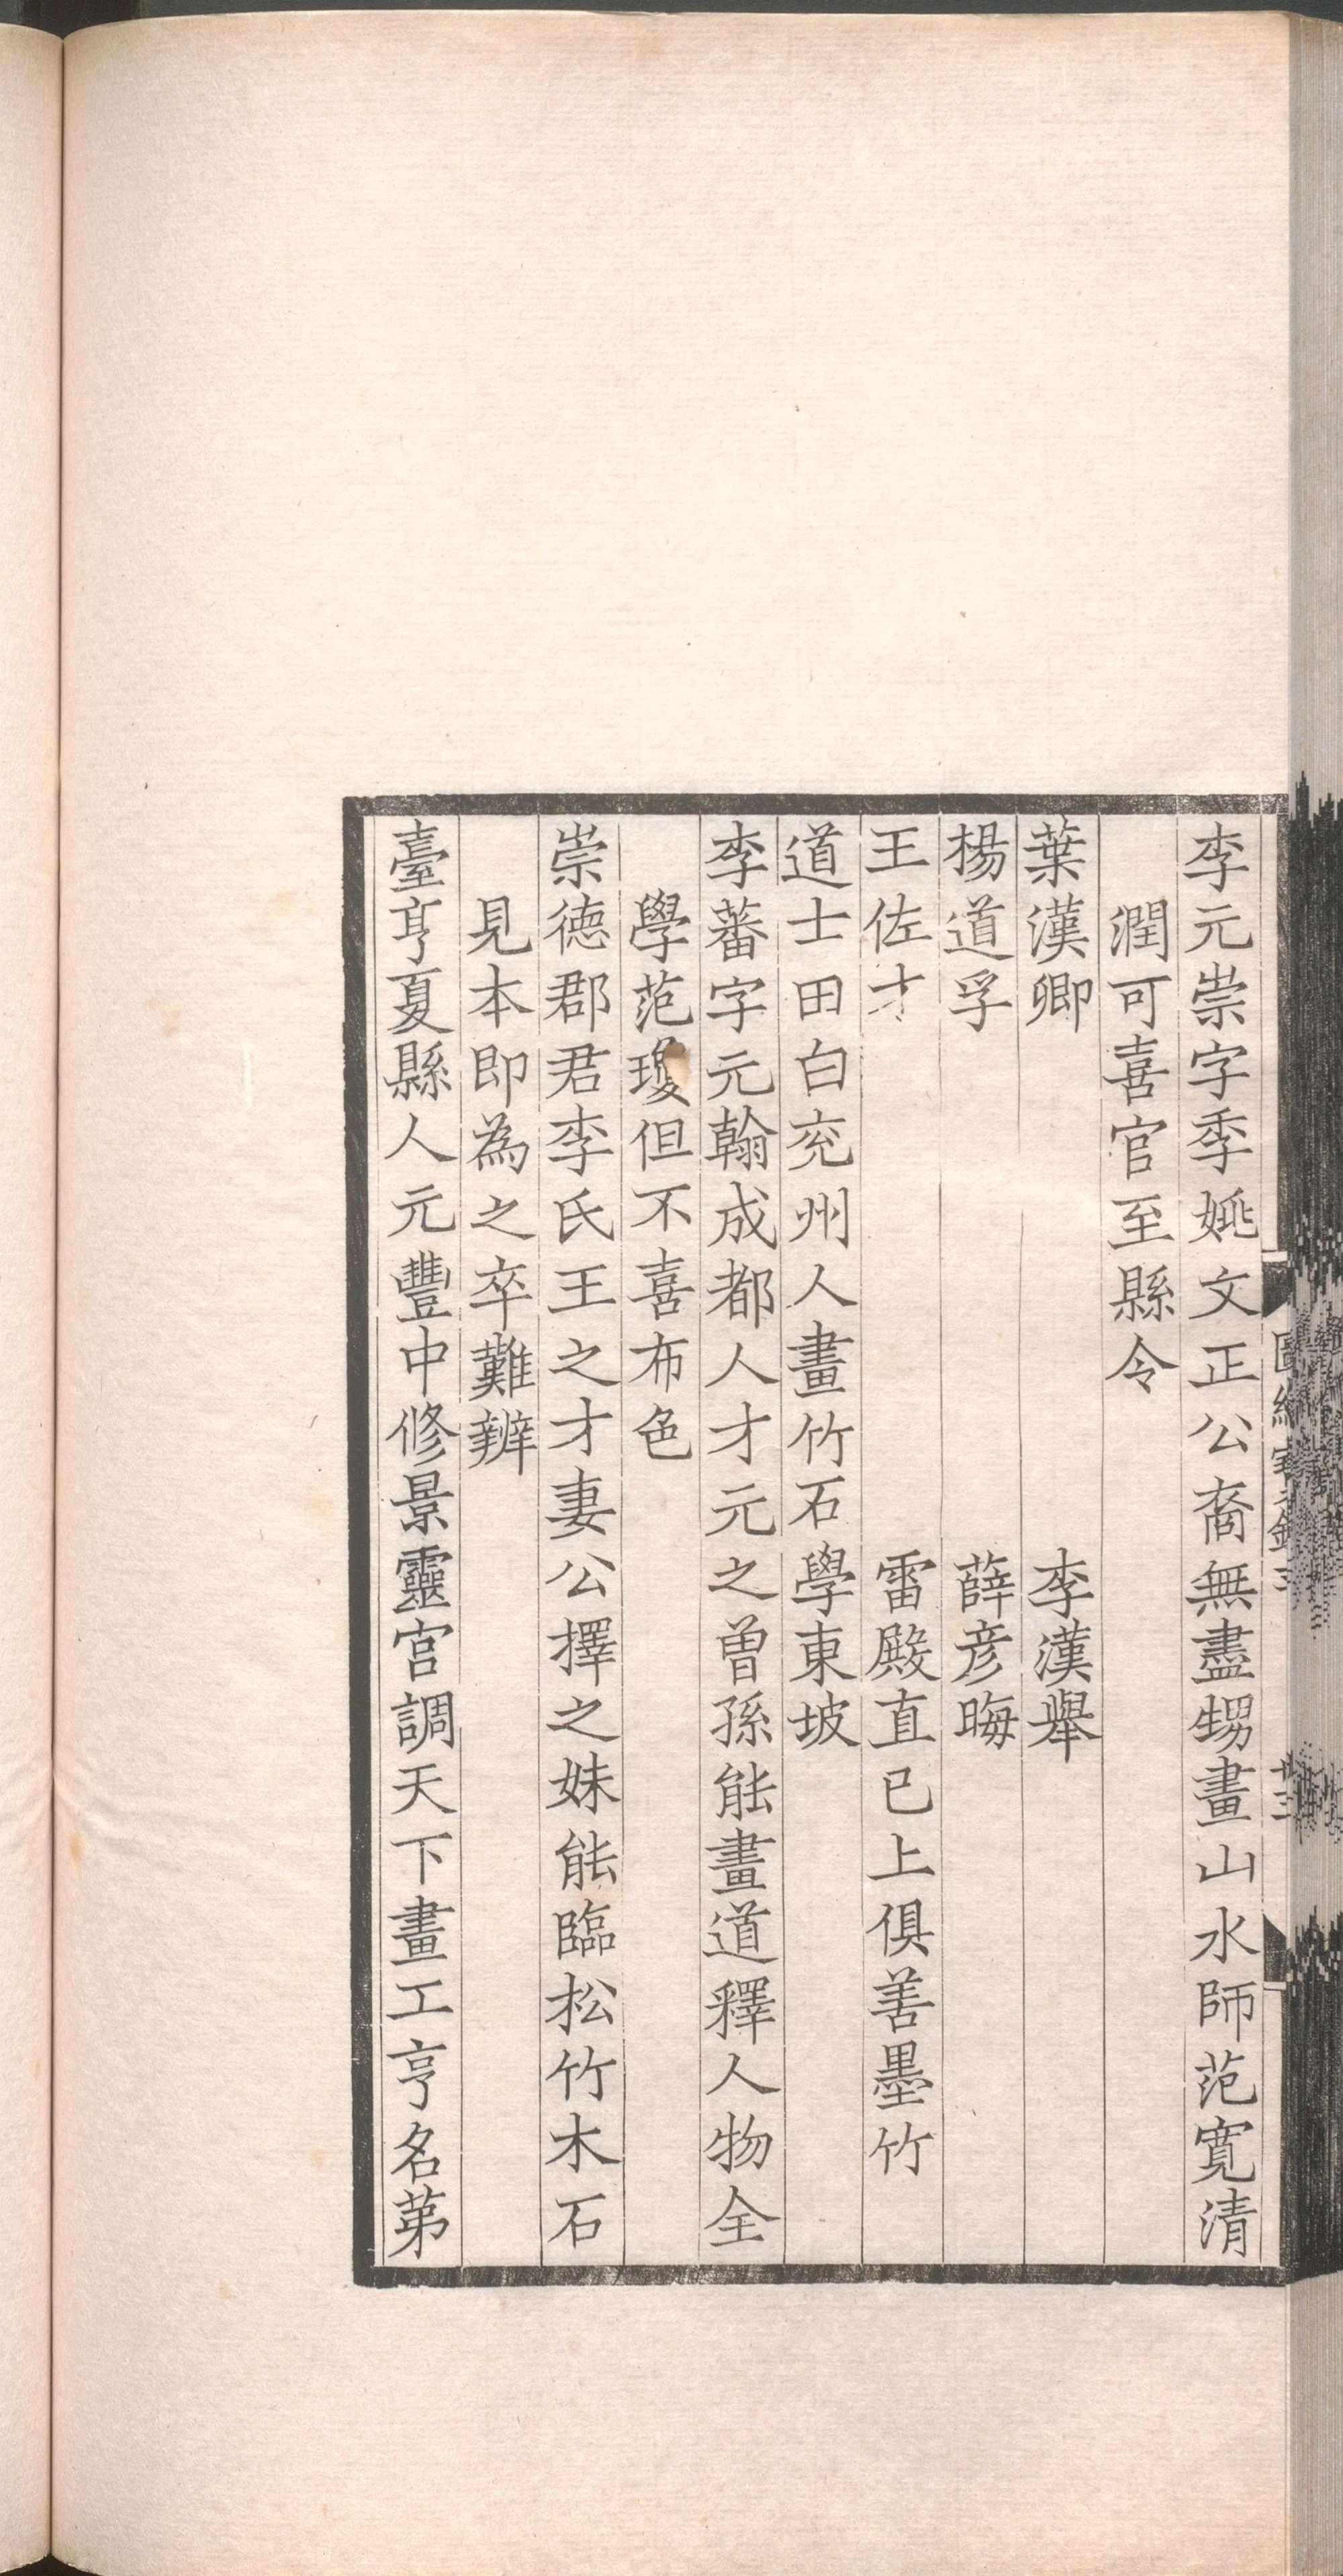 李元崇字季姚文正公裔無盡甥畫山水師范寬清
潤可喜官至縣令
葉漢卿 李漢舉
楊道孚 薛彥晦
王佐才 雷殿直已上俱善墨竹
道士田白兖州人畫竹石學東坡
李蕃字元翰成都人才元之曾孫能畫道釋人物全
學范瓊但不喜布色
崇德郡君李氏王之才妻公擇之妹能臨松竹木石
見本即為之卒難辨
臺亨夏縣人元豐中修景靈宮調天下畫工亨名第